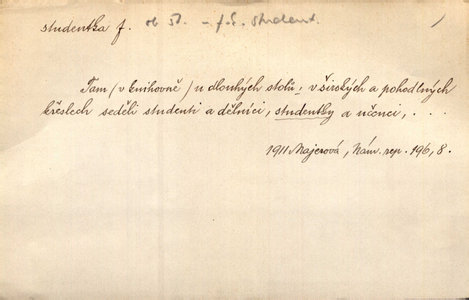 studentka f. ob 51. u f. l. student.
Tam /v knihovně/ u dlouhých stolů, v širských a pohodlných
křeslech seděli studenti a dělníci, studentky a učenci, . . .
1911 Majerová, Nám. rep. 196, 8.